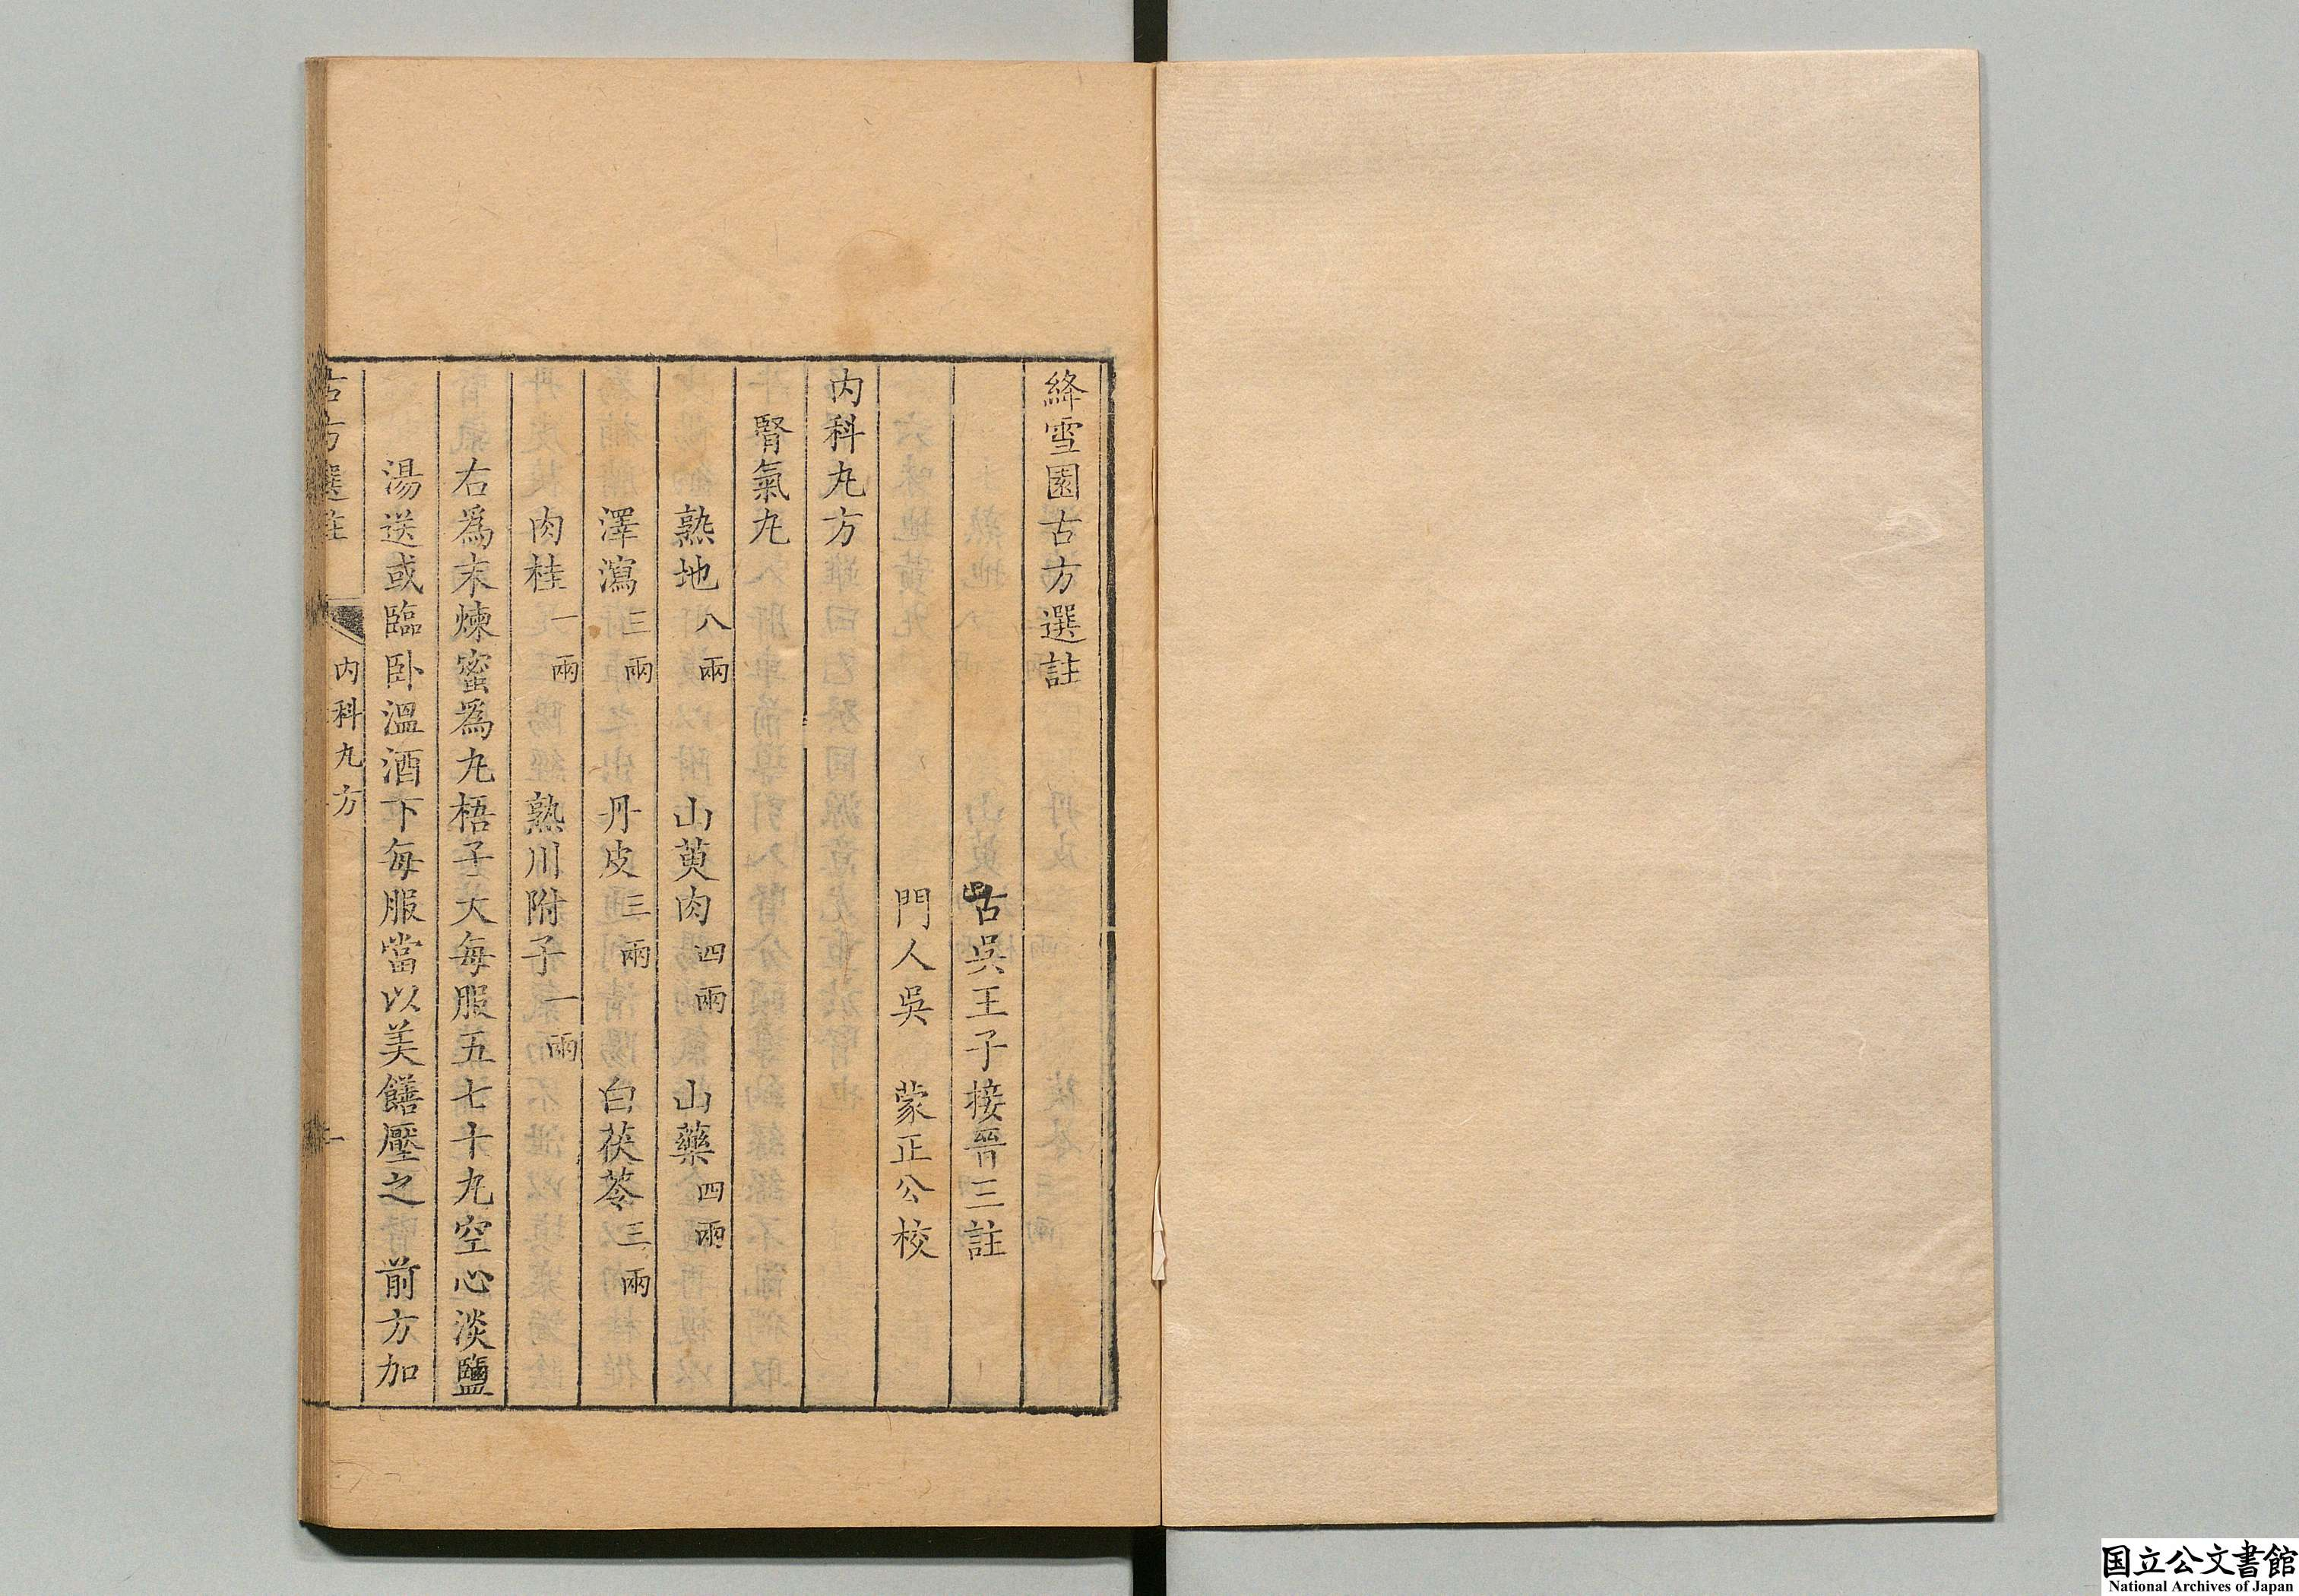 絳雪園古方選註
古吳王子接晉三註
門人吳　蒙正公校
內科丸方
腎氣丸
熟地八兩　山萸肉四兩　山藥四兩
澤瀉三兩　丹皮三兩　白茯苓三兩
肉桂一兩　熟川附子一兩
右爲末煉蜜爲丸梧子大每服五七十丸空心淡鹽
湯送或臨臥溫酒下每服當以美饍壓之　前方加
古方選註　內科丸方　一
国立公文書館
National Archives of Japan